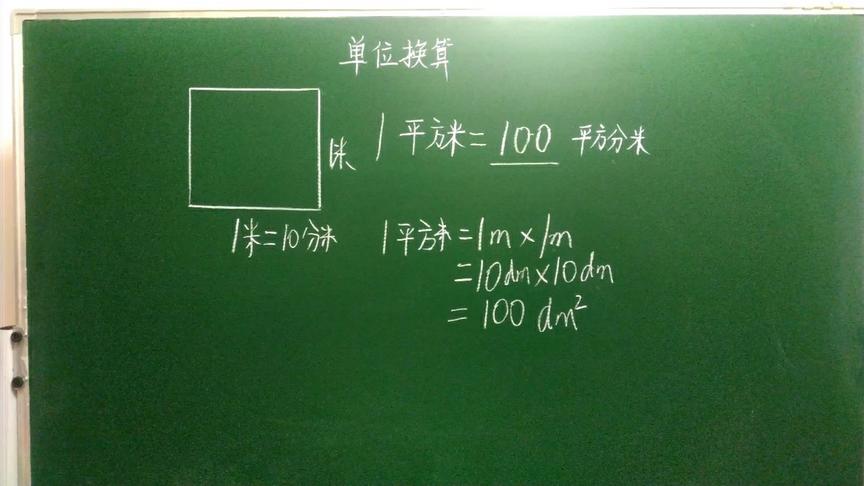 单位换算
1米
1平方米=100平方分米
1米=10分米
1平方米=1m×1m
=10dm×10dm
=100dm²